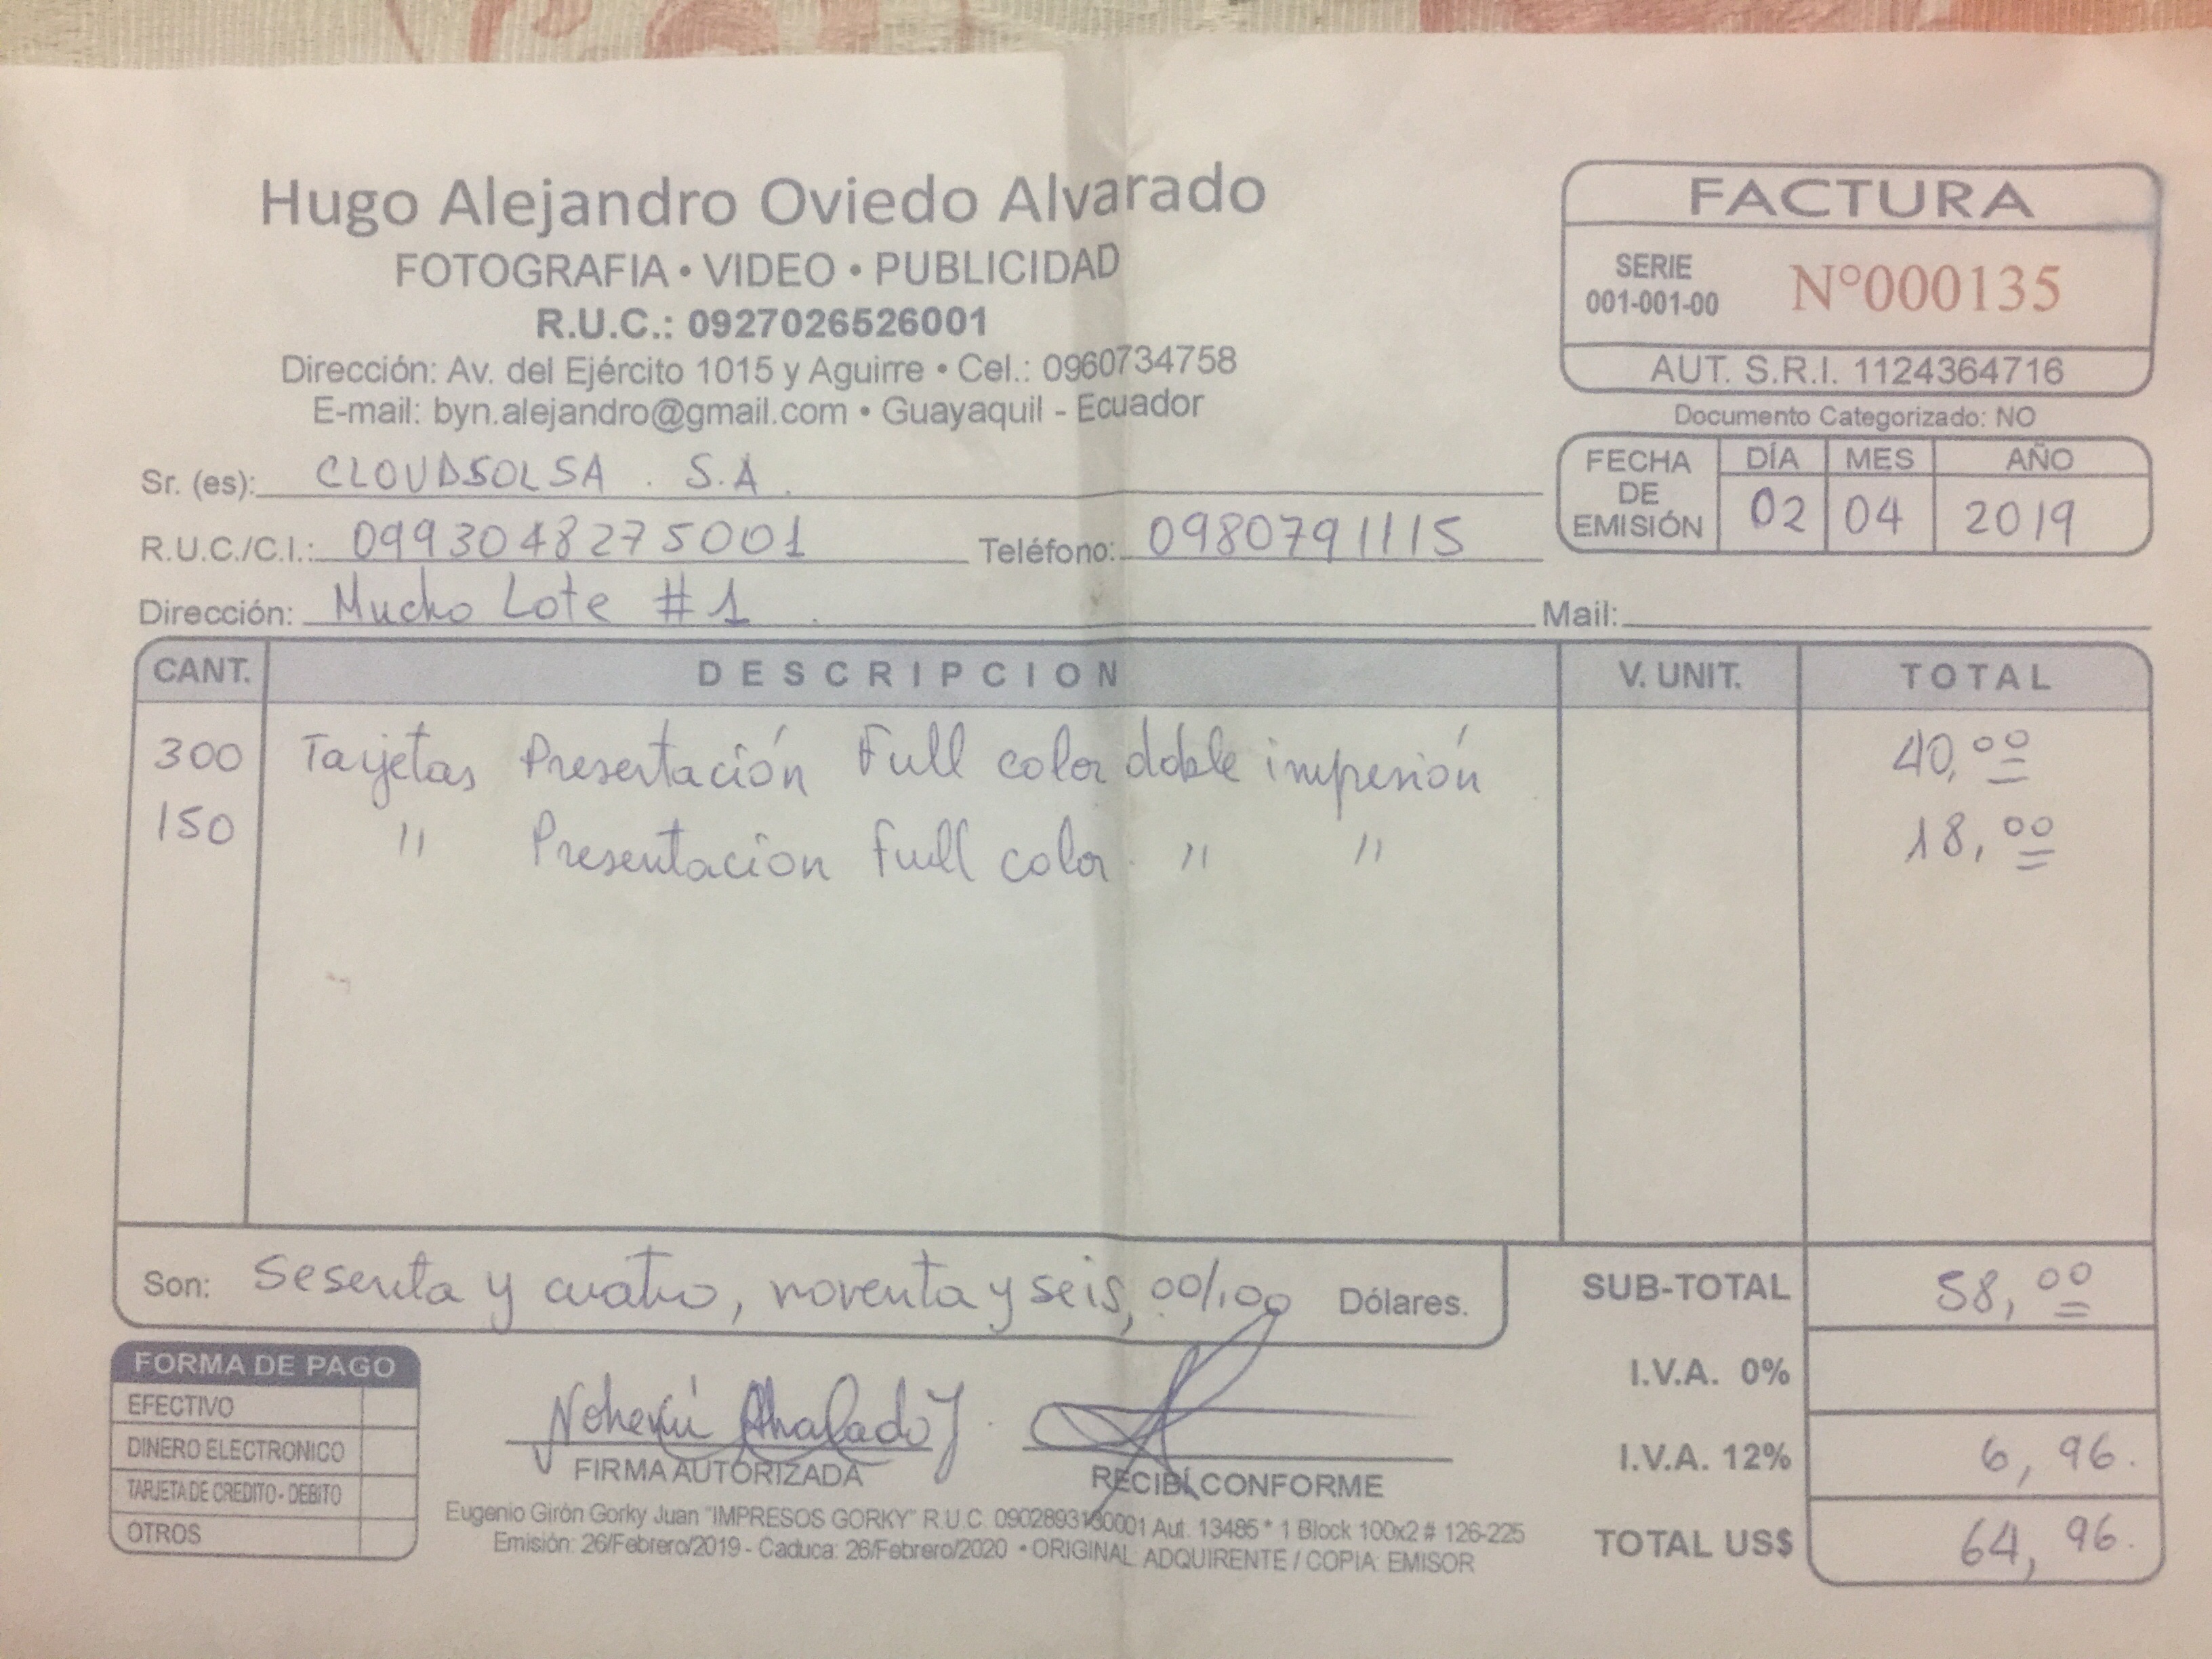 Hugo Alejandro Oviedo Alvarado
FOTOGRAFIA • VIDEO • PUBLICIDAD
R.U.C.: 0927026526001
Dirección: Av. del Ejército 1015 y Aguirre • Cel.: 0960734758
E-mail: byn.alejandro@gmail.com • Guayaquil - Ecuador
FACTURA
SERIE
001-001-00 N°000135
AUT. S.R.I. 1124364716
Documento Categorizado: NO
Sr. (es): CLOUDSOLSA. S.A.
R.U.C./C.I.: 0993048275001 Teléfono: 0980791115
Dirección: Mucho Lote #1. Mail:
FECHA DE EMISIÓN DÍA MES AÑO
02 04 2019
CANT. DESCRIPCION V. UNIT. TOTAL
300 Tarjetas Presentación Full color doble impresión 40,00
150 " Presentacion full color. " " 18,00
Son: Sesenta y cuatro, noventa y seis, 00/100 Dólares.
SUB-TOTAL 58,00
I.V.A. 0%
I.V.A. 12% 6,96.
TOTAL US$ 64,96.
FORMA DE PAGO
EFECTIVO
DINERO ELECTRONICO
TARJETA DE CREDITO - DEBITO
OTROS
FIRMA AUTORIZADA
RECIBÍ CONFORME
Eugenio Girón Gorky Juan "IMPRESOS GORKY" R.U.C. Aut. 13486 * 1 Block 100x2 # 126-225
Emisión: 26/Febrero/2019 - Caduca: 26/Febrero/2020 • ORIGINAL: ADQUIRENTE / COPIA: EMISOR